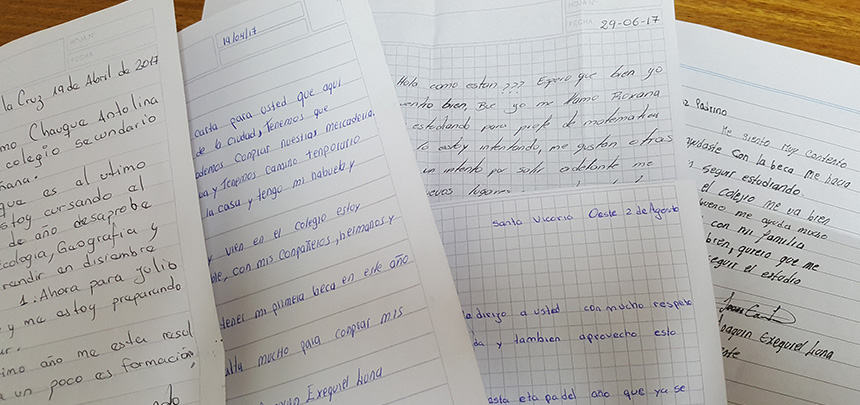 la Cruz 19 de Abril de 2017
mo Chauque Antolina
colegio secundario
que es al utimo
stoy cursando al
de año desaprobe
cología, Gaografía y
randir an disiambra
1. Ahora para julio
y ma astoy praparando
imo año me asta
a un poco as formación
14/04/17
carta para usted que aqui
de la ciudad, Tenemos que
Conprar nuestras mercaderia.
y Tenemos Camino tenporario
la casa y tengo mi habuelo y
y vien en el colegio estoy
con mis Conpañelos, helmanos y
tener mi plimera beca en este año
mucho pala conplar mis
Exequiel Luna
FECHA 29-06-17
Hola como estan ??? Espero que bien yo
bien, Bue yo me llamo Roxana
estudiando para profe de matematica
lo estoy intentando, me gustan otras
un intento por salir adelante me
lugares
Santa Vicoria Oeste 2 de Agosto
dirijo a usted con mucho respeto
y tambien aprovecho esta
esta etapa del año que ya se
Padrino
Me siento Muy Contento
ayudaste Con la beca me hacia
seguir estudiando
el Colegio me va bien
bueno me ayuda mucho
con mi familia
bien, quiero que me
seguir el estudio
Joaquin Exequiel Luna